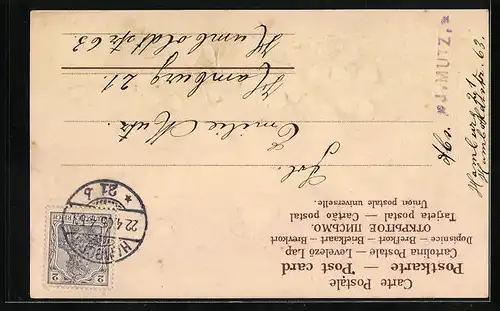 Carte Postale
Postkarte — Post card
Cartolina Postale — Levelező Lap
Dopisnice — Brefkort — Briefkaart — Brevkort
ОТКРЫТОЕ ПИСЬМО.
Tarjeta postal — Cartão postal
Union postale universelle.
Frl.
Emilie Mutz.
Hamburg 21.
Humboldtstr 63.
J. MUTZ.
Abs.
Hamburg 21
Humboldtstr. 63.
HAMBURG
22.4.
* 21 b
2
2